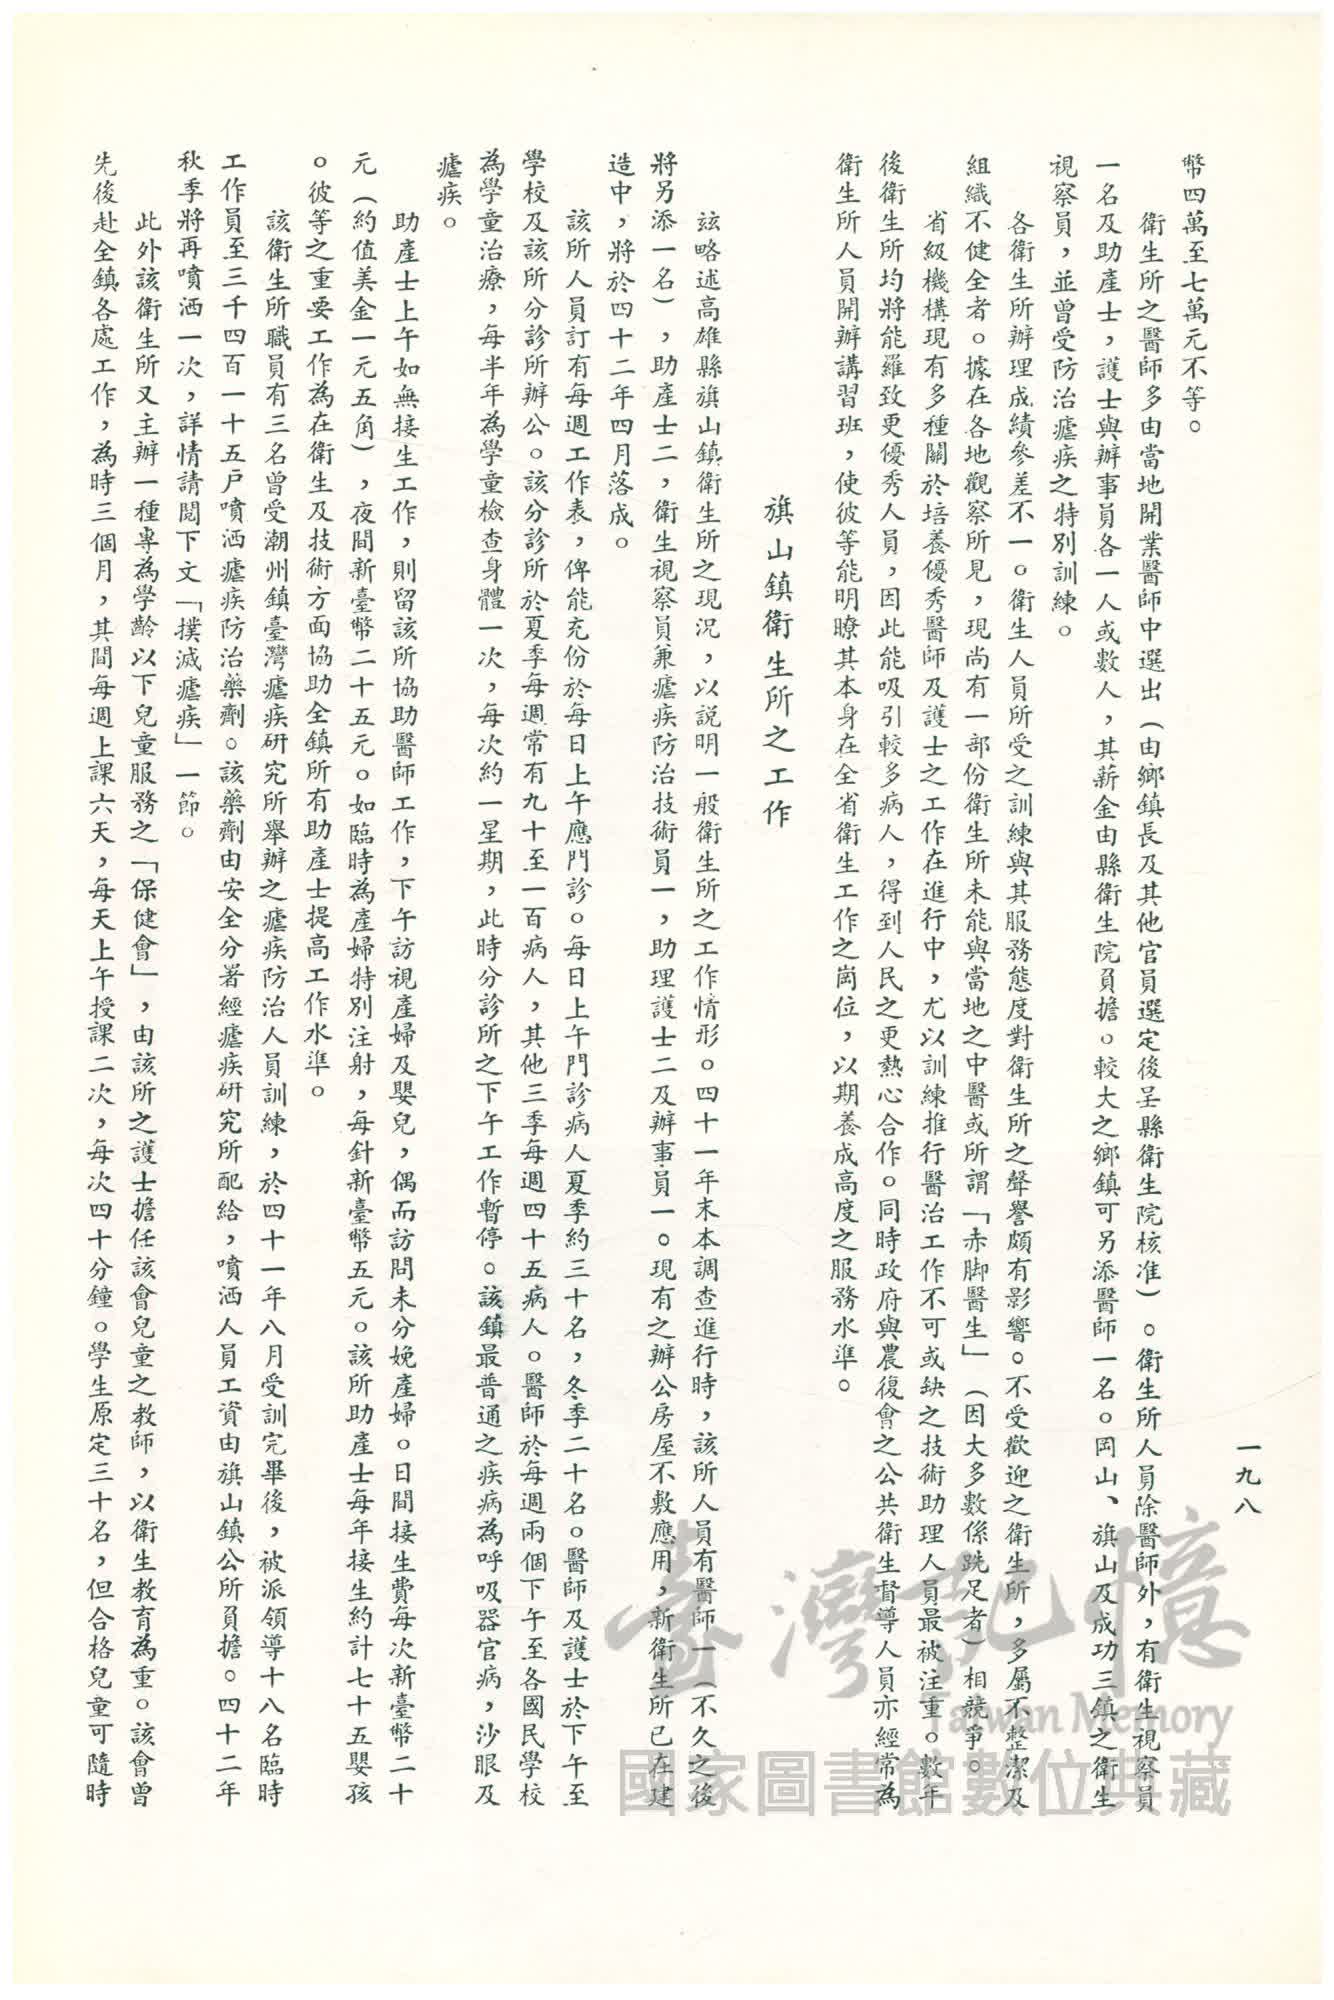 一九八
幣四萬至七萬元不等。
衛生所之醫師多由當地開業醫師中選出（由鄉鎮長及其他官員選定後呈縣衛生院核准）。衛生所人員除醫師外，有衛生視察員
一名及助產士，護士與辦事員各一人或數人，其薪金由縣衛生院負擔。較大之鄉鎮可另添醫師一名。岡山、旗山及成功三鎮之衛生
視察員，並曾受防治瘧疾之特別訓練。
各衛生所辦理成績參差不一。衛生人員所受之訓練與其服務態度對衛生所之聲譽頗有影響。不受歡迎之衛生所，多屬不整潔及
組織不健全者。據在各地觀察所見，現尚有一部份衛生所未能與當地之中醫或所謂「赤脚醫生」（因大多數係跣足者）相競爭。
省級機構現有多種關於培養優秀醫師及護士之工作在進行中，尤以訓練推行醫治工作不可或缺之技術助理人員最被注重。數年
後衛生所均將能羅致更優秀人員，因此能吸引較多病人，得到人民之更熱心合作。同時政府與農復會之公共衛生督導人員亦經常為
衛生所人員開辦講習班，使彼等能明瞭其本身在全省衛生工作之崗位，以期養成高度之服務水準。
旗山鎮衛生所之工作
玆略述高雄縣旗山鎮衛生所之現況，以說明一般衛生所之工作情形。四十一年末本調查進行時，該所人員有醫師一（不久之後
將另添一名），助產士二，衛生視察員兼瘧疾防治技術員一，助理護士二及辦事員一。現有之辦公房屋不敷應用，新衛生所已在建
造中，將於四十二年四月落成。
該所人員訂有每週工作表，俾能充份於每日上午應門診。每日上午門診病人夏季約三十名，冬季二十名。醫師及護士於下午至
學校及該所分診所辦公。該分診所於夏季每週常有九十至一百病人，其他三季每週四十五病人。醫師於每週兩個下午至各國民學校
為學童治療，每半年為學童檢查身體一次，每次約一星期，此時分診所之下午工作暫停。該鎮最普通之疾病為呼吸器官病，沙眼及
瘧疾。
助產士上午如無接生工作，則留該所協助醫師工作，下午訪視產婦及嬰兒，偶而訪問未分娩產婦。日間接生費每次新臺幣二十
元（約值美金一元五角），夜間新臺幣二十五元。如臨時為產婦特別注射，每針新臺幣五元。該所助產士每年接生約計七十五嬰孩
。彼等之重要工作為在衛生及技術方面協助全鎮所有助產士提高工作水準。
該衛生所職員有三名曾受潮州鎮臺灣瘧疾研究所舉辦之瘧疾防治人員訓練，於四十一年八月受訓完畢後，被派領導十八名臨時
工作員至三千四百一十五戶噴洒瘧疾防治藥劑。該藥劑由安全分署經瘧疾研究所配給，噴洒人員工資由旗山鎮公所負擔。四十二年
秋季將再噴洒一次，詳情請閱下文「撲滅瘧疾」一節。
此外該衛生所又主辦一種專為學齡以下兒童服務之「保健會」，由該所之護士擔任該會兒童之教師，以衛生教育為重。該會曾
先後赴全鎮各處工作，為時三個月，其間每週上課六天，每天上午授課二次，每次四十分鐘。學生原定三十名，但合格兒童可隨時
臺灣記憶
Taiwan Memory
國家圖書館數位典藏